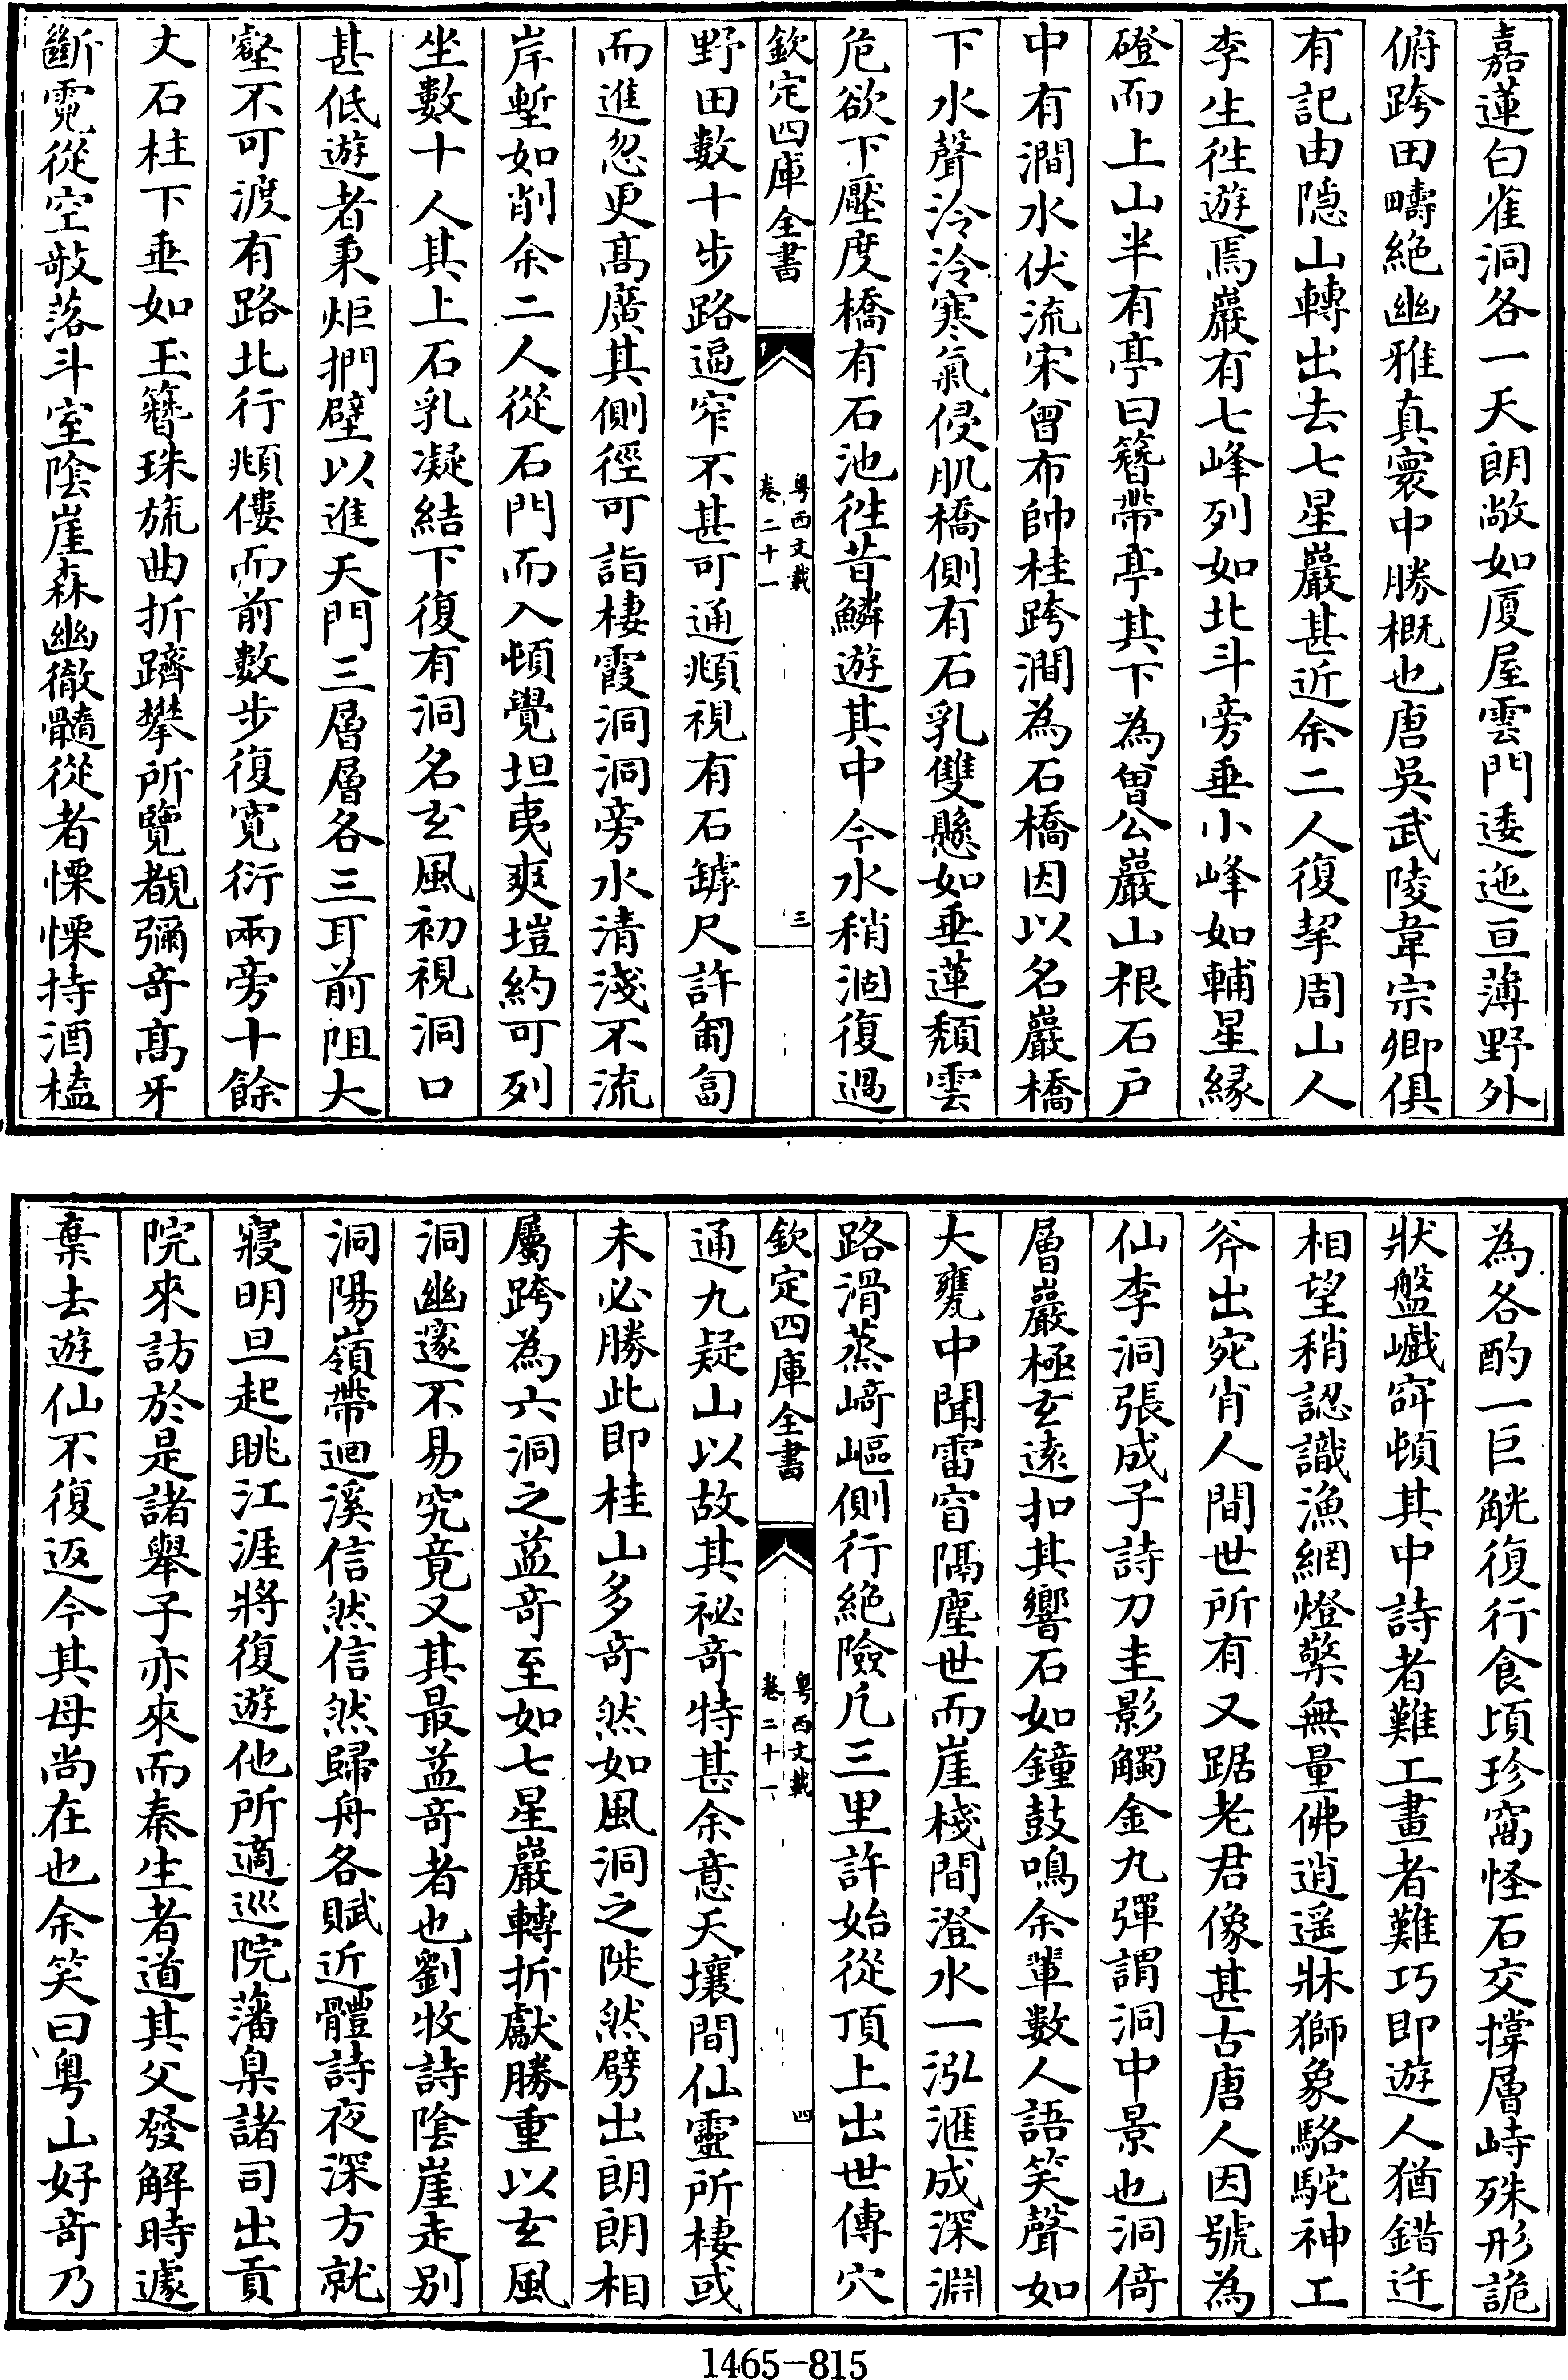 嘉蓮白雀洞各一天朗敞如厦屋雲門逶迤亘薄野外
俯跨田疇絶幽雅真寰中勝概也唐吳武陵韋宗卿俱
有記由隠山轉出去七星巖甚近余二人復挈周山人
李生徃遊焉巖有七峰列如北斗旁垂小峰如輔星縁
磴而上山半有亭曰簪帶亭亭其下為曾公巖山根石戶
中有澗水伏流宋曾布帥桂跨澗為石橋因以名巖橋
下水聲泠泠寒氣侵肌橋側有石乳雙懸如垂蓮頽雲
危欲下壓度橋有石池徃昔鱗遊其中今水稍涸復過
欽定四庫全書
粤西文載
卷二十一
三
野田數十步路逼窄不甚可通頫視有石罅尺許匍匐
而進忽更髙廣其側徑可詣棲霞洞洞旁水清淺不流
岸塹如削余二人從石門而入頓覺坦夷爽塏約可列
坐數十人其上石乳凝結下復有洞名玄風初視洞口
甚低遊者秉炬捫壁以進天門三層層各三耳前阻大
壑不可渡有路北行頫僂而前數步復寛衍兩旁十餘
丈石柱下垂如玉簪珠旒曲折躋攀所覽覩彌竒髙牙
斷霓從空敧落斗室陰崖森幽徹髓從者慄慄持酒榼
為各酌一巨觥復行食頃珍窩怪石交撐層峙殊形詭
狀盤巇窣頓其中詩者難工畫者難巧即遊人猶錯迕
相望稍認識漁網燈檠無量佛逍遥牀獅象駱駝神工
斧出宛肖人間世所有又踞老君像甚古唐人因號為
仙李洞張成子詩刀圭影觸金九彈謂洞中景也洞倚
層巖極玄逺扣其響石如鐘鼓鳴余輩數人語笑聲如
大甕中聞雷窅隔塵世而崖棧間澄水一泓滙成深淵
路滑蒸﨑嶇側行絶險凡三里許始從頂上出世傳穴
欽定四庫全書
粤西文載
卷二十一
四
通九疑山以故其祕竒特甚余意天壤間仙靈所棲或
未必勝此即桂山多竒然如風洞之陡然劈出朗朗相
屬跨為六洞之益竒至如七星巖轉折獻勝重以玄風
洞幽邃不易究竟又其最益竒者也劉牧詩陰崖走别
洞陽嶺帶迴溪信然信然歸舟各賦近體詩夜深方就
寢明旦起眺江涯將復遊他所適巡院藩臬諸司出貢
院來訪於是諸舉子亦來而秦生者道其父發解時遽
棄去遊仙不復返今其母尚在也余笑曰粤山好竒乃
1465-815